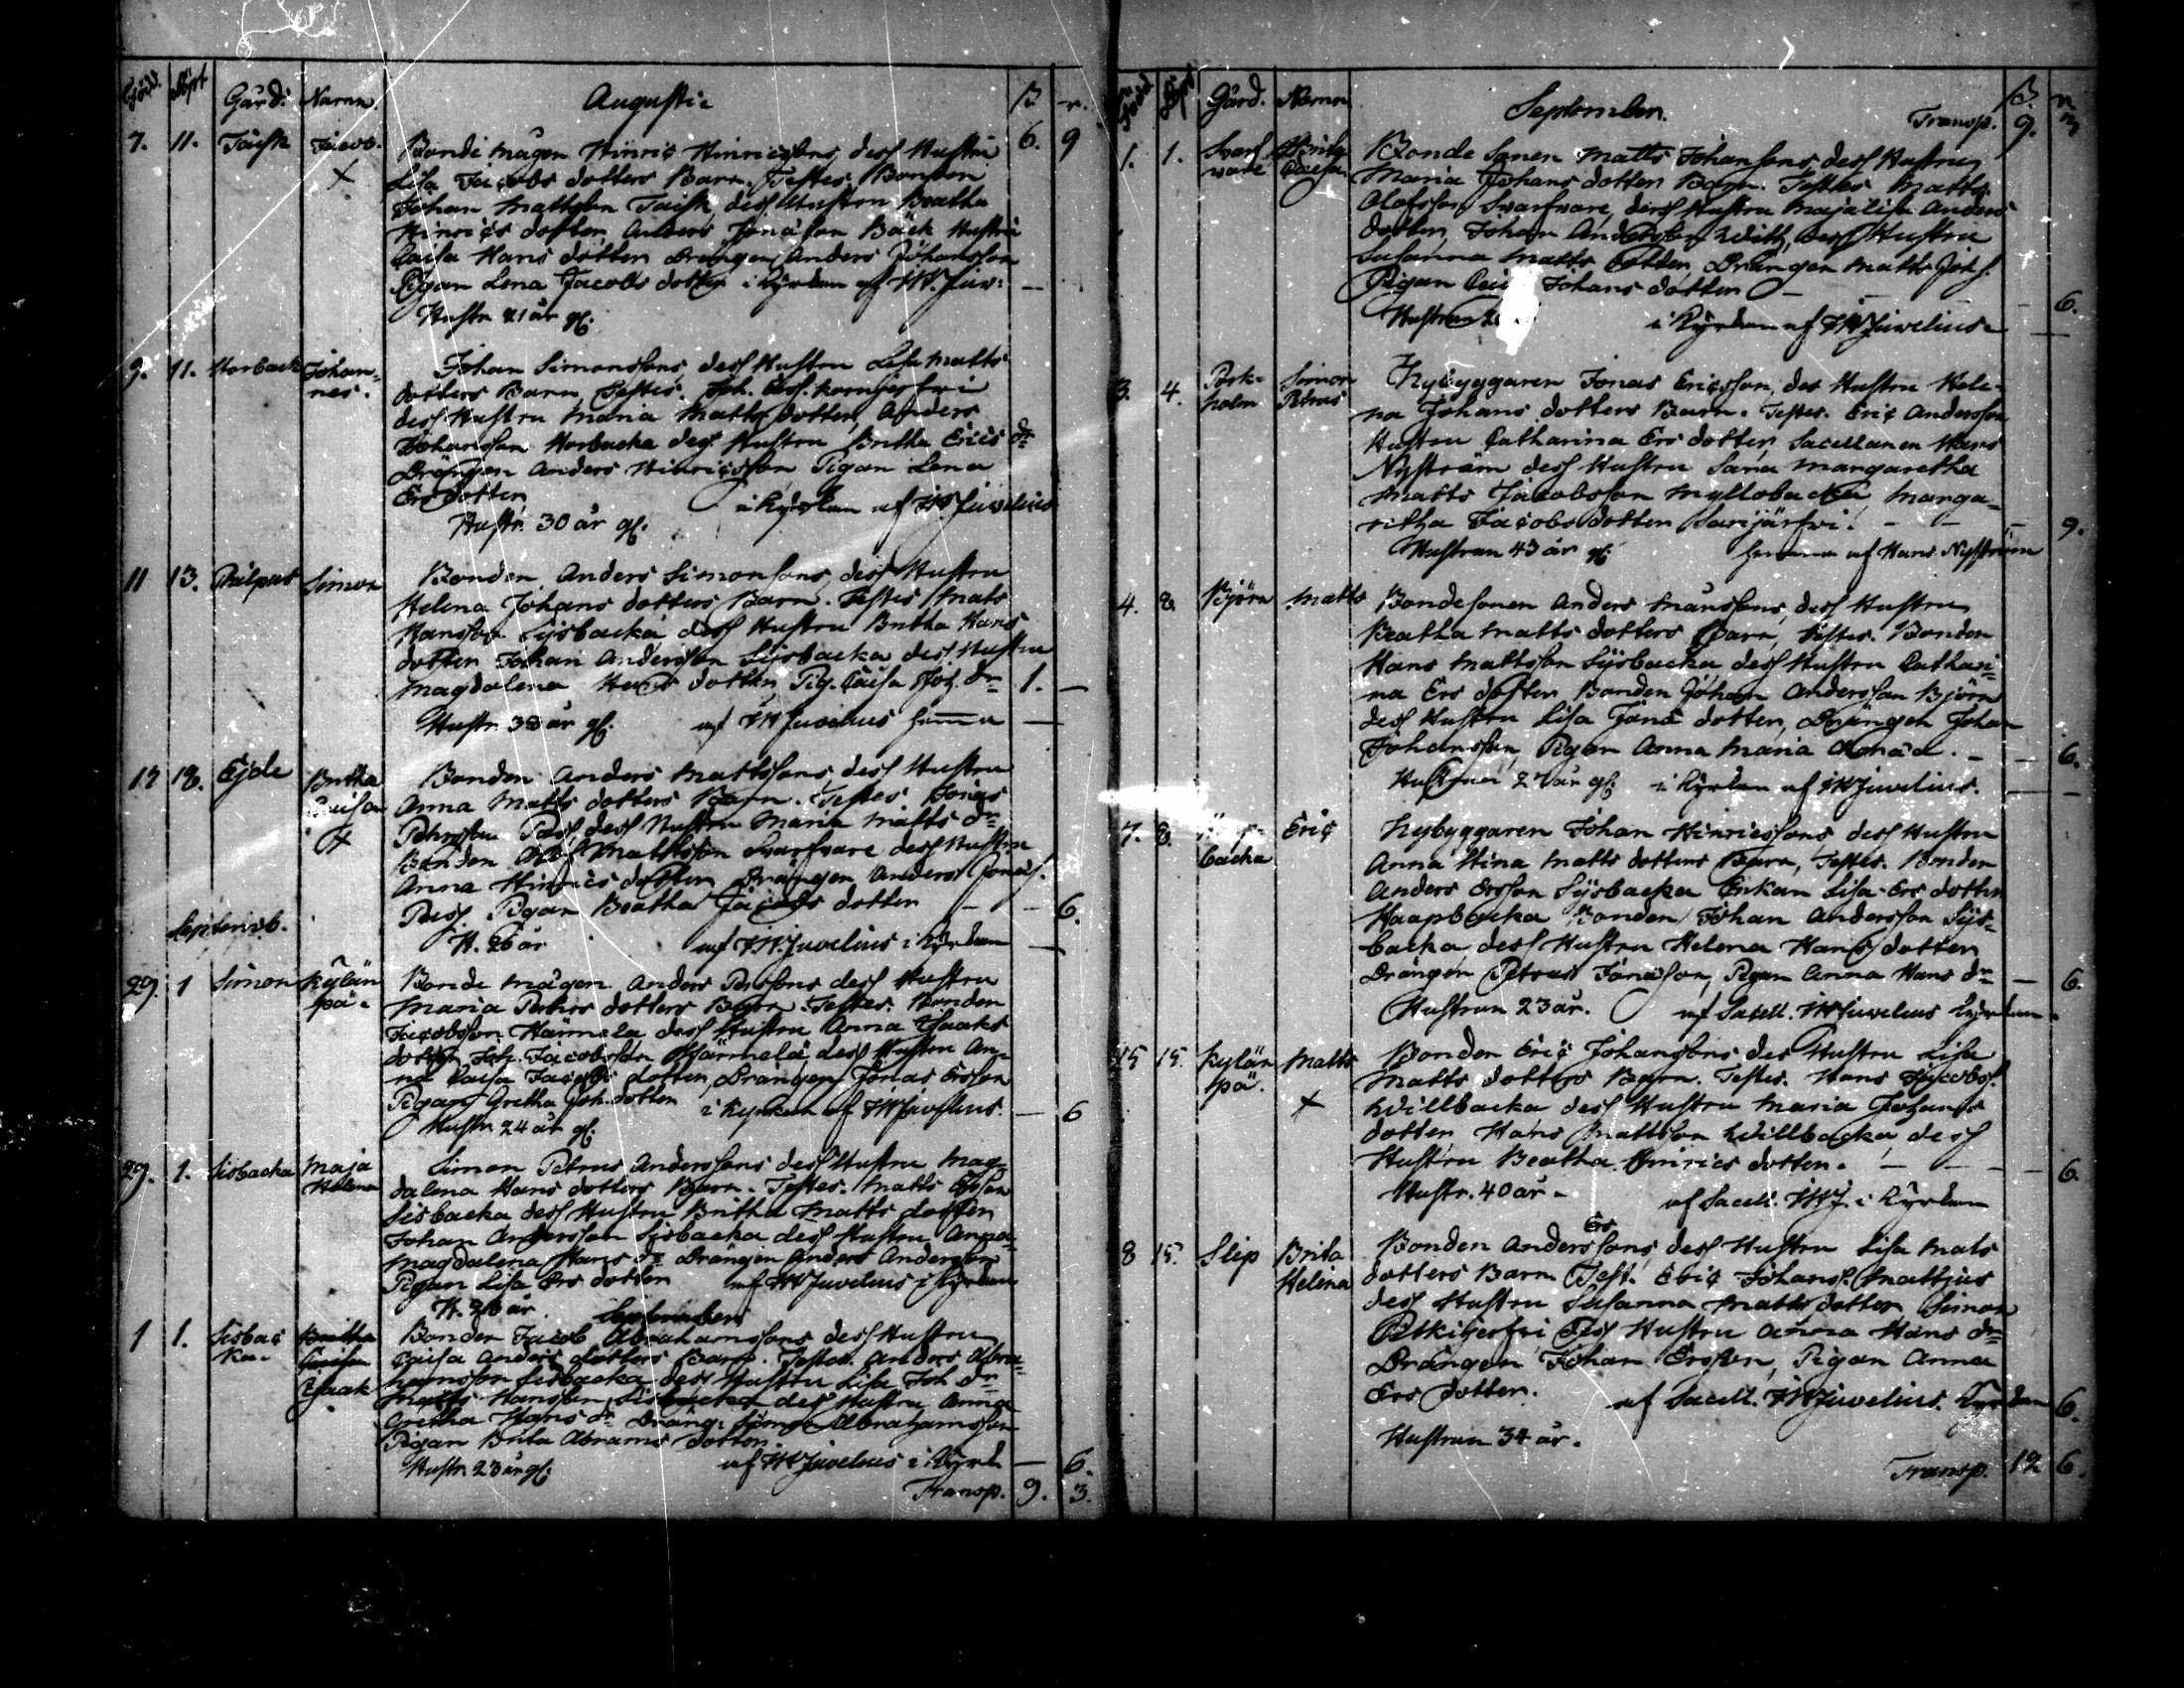 född. döpt Gård: Namn. Augusti. B r.
7. 11. Taisk Jacob. Bonde mågen Hinric Hinricssons dess Hustru 6. 9
X Lisa Jacobs dotters Barn. Testes Bonden
Johan Mattsson Taisk, dess Hustru Beatha
Hinrics dotter, Anders Jonasson Bäck Hustru
Caisa Hans dotter Drängen Anders Johansson
Pigan Lena Jacobs dotter i Kyrkan af IW. Juv:
Hustr 21 år gl:
9. 11. Horback Johan= Johan Simonssons dess Hustru Lisa Matts
nes. dotters Barn, Testes. Joh.
dess Hustru Maria Matts dotter, Anders
Johansson Horbacka dess Hustru Britha Erics dr
Drängen Anders Hinricsson Pigan Lena
Ersdotter i Kyrkan af IW Juvelius
Hustr. 30 år gl.
11 13. Simon Bonden Anders Simonssons dess Hustru
Helena Johans dotters Barn. Testes Mats
Hansson Sysbacka dess Hustru Britha Hans
dotter Johan Andersson Sysbacka dess Hustru
Magdalena dotter, Pig. Caisa Joh. dr 1. —
Hustr. 38 år gl. af IW Juvelius hemma —
18. Ejde Britha Bonden Anders Mattssons dess Hustru
Caisa Anna Matts dotters Barn. Testes Jonas
X Pehrsson Pass dess Hustru Maria Matts dr
Bonden Mattsson Svarfvare dess Hustru
Anna Hinrics dotter Drängen Anders Jonas.
Pass Pigan Beatha Jacobs dotter — — 6.
Septemb.
H. 26 år af IW. Juvelius i Kyrkan —
29. 1 Simon Kylän Bonde mågen Anders Perssons dess Hustru
pä. Maria Pehrs dotters Barn. Testes. Bonden
Jacobsson Härmälä dess Hustru Anna Isaaks
dotter Joh. Jacobsson Härmälä dess Hustru An-
na Caisa Jacobs dotter, Drängen Jonas Ersson
Pigan Gretha Joh. dotter i Kyrkan af IW Juvelius. — 6
Hustr. 24 år gl.
29. 1. Sisbacka Maja Simon Petrus Anderssons dess Hustru Mag-
Helena dalena Hans dotters Barn. Testes. Matts Ersson
Sisbacka dess Hustru Britha Matts dotter
Johan Andersson Sisbacka dess Hustru Anna
Magdalena Hans dr Drängen Anders Andersson
Pigan Lisa Ers dotter af IW Juvelius i Kyrkan
H. 26 år September
1 1. Sisbac Britha Bonden Jacob Abrahamssons dess Hustru
ka. Caisa Caisa Anders dotters Barn. Testes. Anders Abra=
Isaak hamsson Sisbacka dess Hustru Lisa Joh dr
Matts Hansson, Sisbacka dess Hustru Anna
Gretha Hans dr Dräng: Jonas Abrahamsson
Pigan Brita Abrams dotter.
Hustr. 23 år gl: af IW Juvelius i Kyrk — 6.
Transp. 9. 3.
född döpt Gård. Namn September. Transp. B. r
9. 3
1. 1. Svarf Bonde Sonen Matts Johanssons dess Hustru
vare Caisa. Maria Johans dotters Barn. Testes Matts
Olofsson Svarfvare, dess Hustru Majalisa Anders
dotter, Johan Andersson Witt, dess Hustru
Susanna Matts dotter, Drängen Matts Joh s.
Pigan Johans dotter — — 6.
Hustrun i Kyrkan af IW Juvelius —
3. 4. Pork- Simon Nybyggaren Jonas Ericsson, des Hustru Hele-
holm Petrus na Johans dotters Barn. Testes. Eric Andersson
Hustru Catharina Ers dotter, Sacellanen Hans
Nyström dess Hustru Sara Margaretha
Matts Jacobsson Myllobacka, Marga-
retha Jacobs dotter Sarijärfvi. — — — 9.
Hustrun 43 år gl: hemma af Hans Nyström
4. 8. Björn Matts Bondesonen Anders Månssons, dess Hustru
Beatha Matts dotters Barn, Testes. Bonden
Hans Mattsson Sysbacka dess Hustru Cathari=
na Ers dotter Bonden Johan Andersson Björn
dess Hustru Lisa Jons dotter, Drängen Johan
Johansson, Pigan Anna Maria — — 6.
Hustrun 27 år gl. i Kyrkan af IW Juvelius. — —
7. 8. Eric Nybyggaren Johan Hinricssons dess Hustru
backa Anna Stina Matts dotters Barn, Testes. Bonden
Anders Ersson Sysbacka Enkan Lisa Ers dotter
Haapbacka Bonden Johan Andersson Sys-
backa dess Hustru Helena Hans dotter
Drängen Petrus Jonasson, Pigan Anna Hans dr — 6.
Hustrun 23 år. af Sacell. IW Juvelius Kyrkan.
15 15. Kylän Matts Bonden Eric Johanssons des Hustru Lisa
pä. X Matts dotters Barn. Testes. Hans Jacobs.
Willbacka dess Hustru Maria Johans
dotter Hans Mattsson Willbacka, dess
Hustru Beatha Hinrics dotter. — — — 6.
Hustr. 40 år. af Sacell. IWJ. i Kyrkan
8 15. Slip Brita Bonden Anders Ers sons dess Hustru Lisa Mats
Helena dotters Barn Test. Eric Johans. Mattjus
dess Hustru Susanna Matts dotter Simon
Petkijerfvi dess Hustru Anna Hans dr
Drängen Johan Ersson, Pigan Anna
Ers dotter. af Sacell. IW Juvelius. Kyrkan 6.
Hustrun 34 år.
Transp. 12 6.